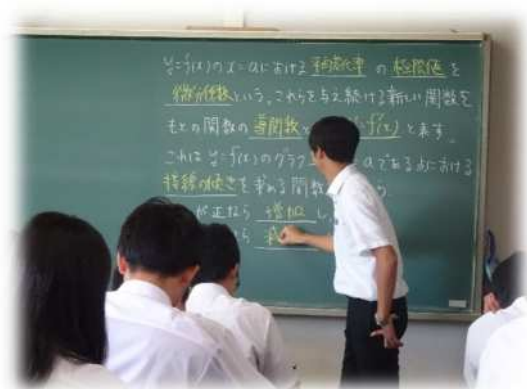 y=f(x)のx=aにおける平均変化率の極限値を
微分係数という。これらを与え続ける新しい関数を
もとの関数の導関数と f'(x)と表す。
これは y=f(x)のグラフ aである点における
接線の傾きを求める関数 ら
が正なら 増加し
ら 減